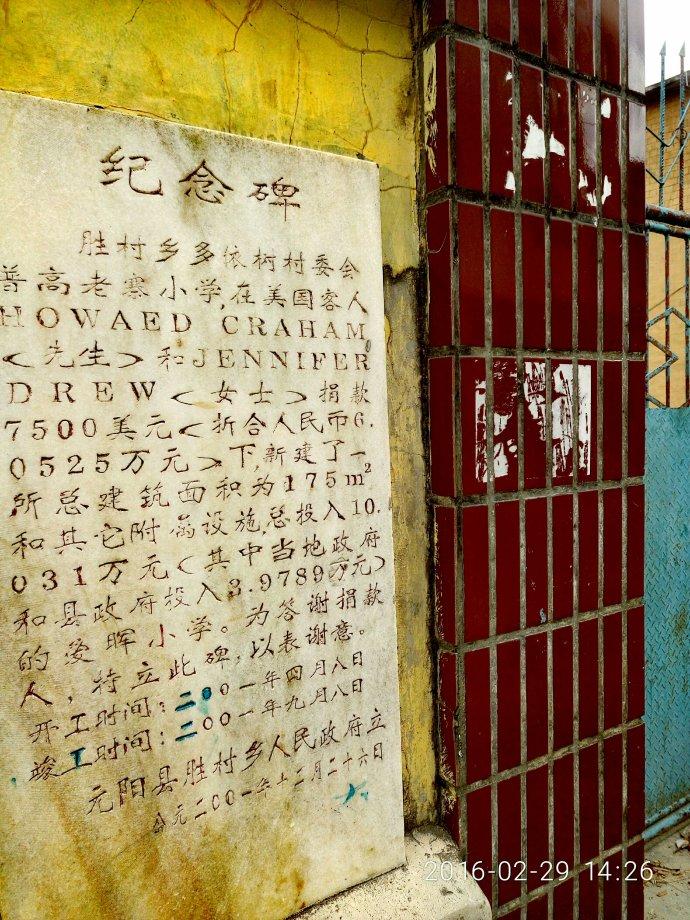 纪念碑
胜村乡多依树村委会
普高老寨小学,在美国客人
HOWAED CRAHAM
<先生>和JENNIFER
DREW<女士>捐款
7500美元<折合人民币6.
0525万元>下,新建了一
所总建筑面积为175m²
和其它附属设施,总投入10.
031万元<其中当地政府
和县政府投入3.9789万元>
的爱晖小学。为答谢捐款
人,特立此碑,以表谢意。
开工时间:二00一年四月八日
竣工时间:二00一年九月八日
元阳县胜村乡人民政府立
公元二00一年十二月二十六日
2016-02-29 14:26